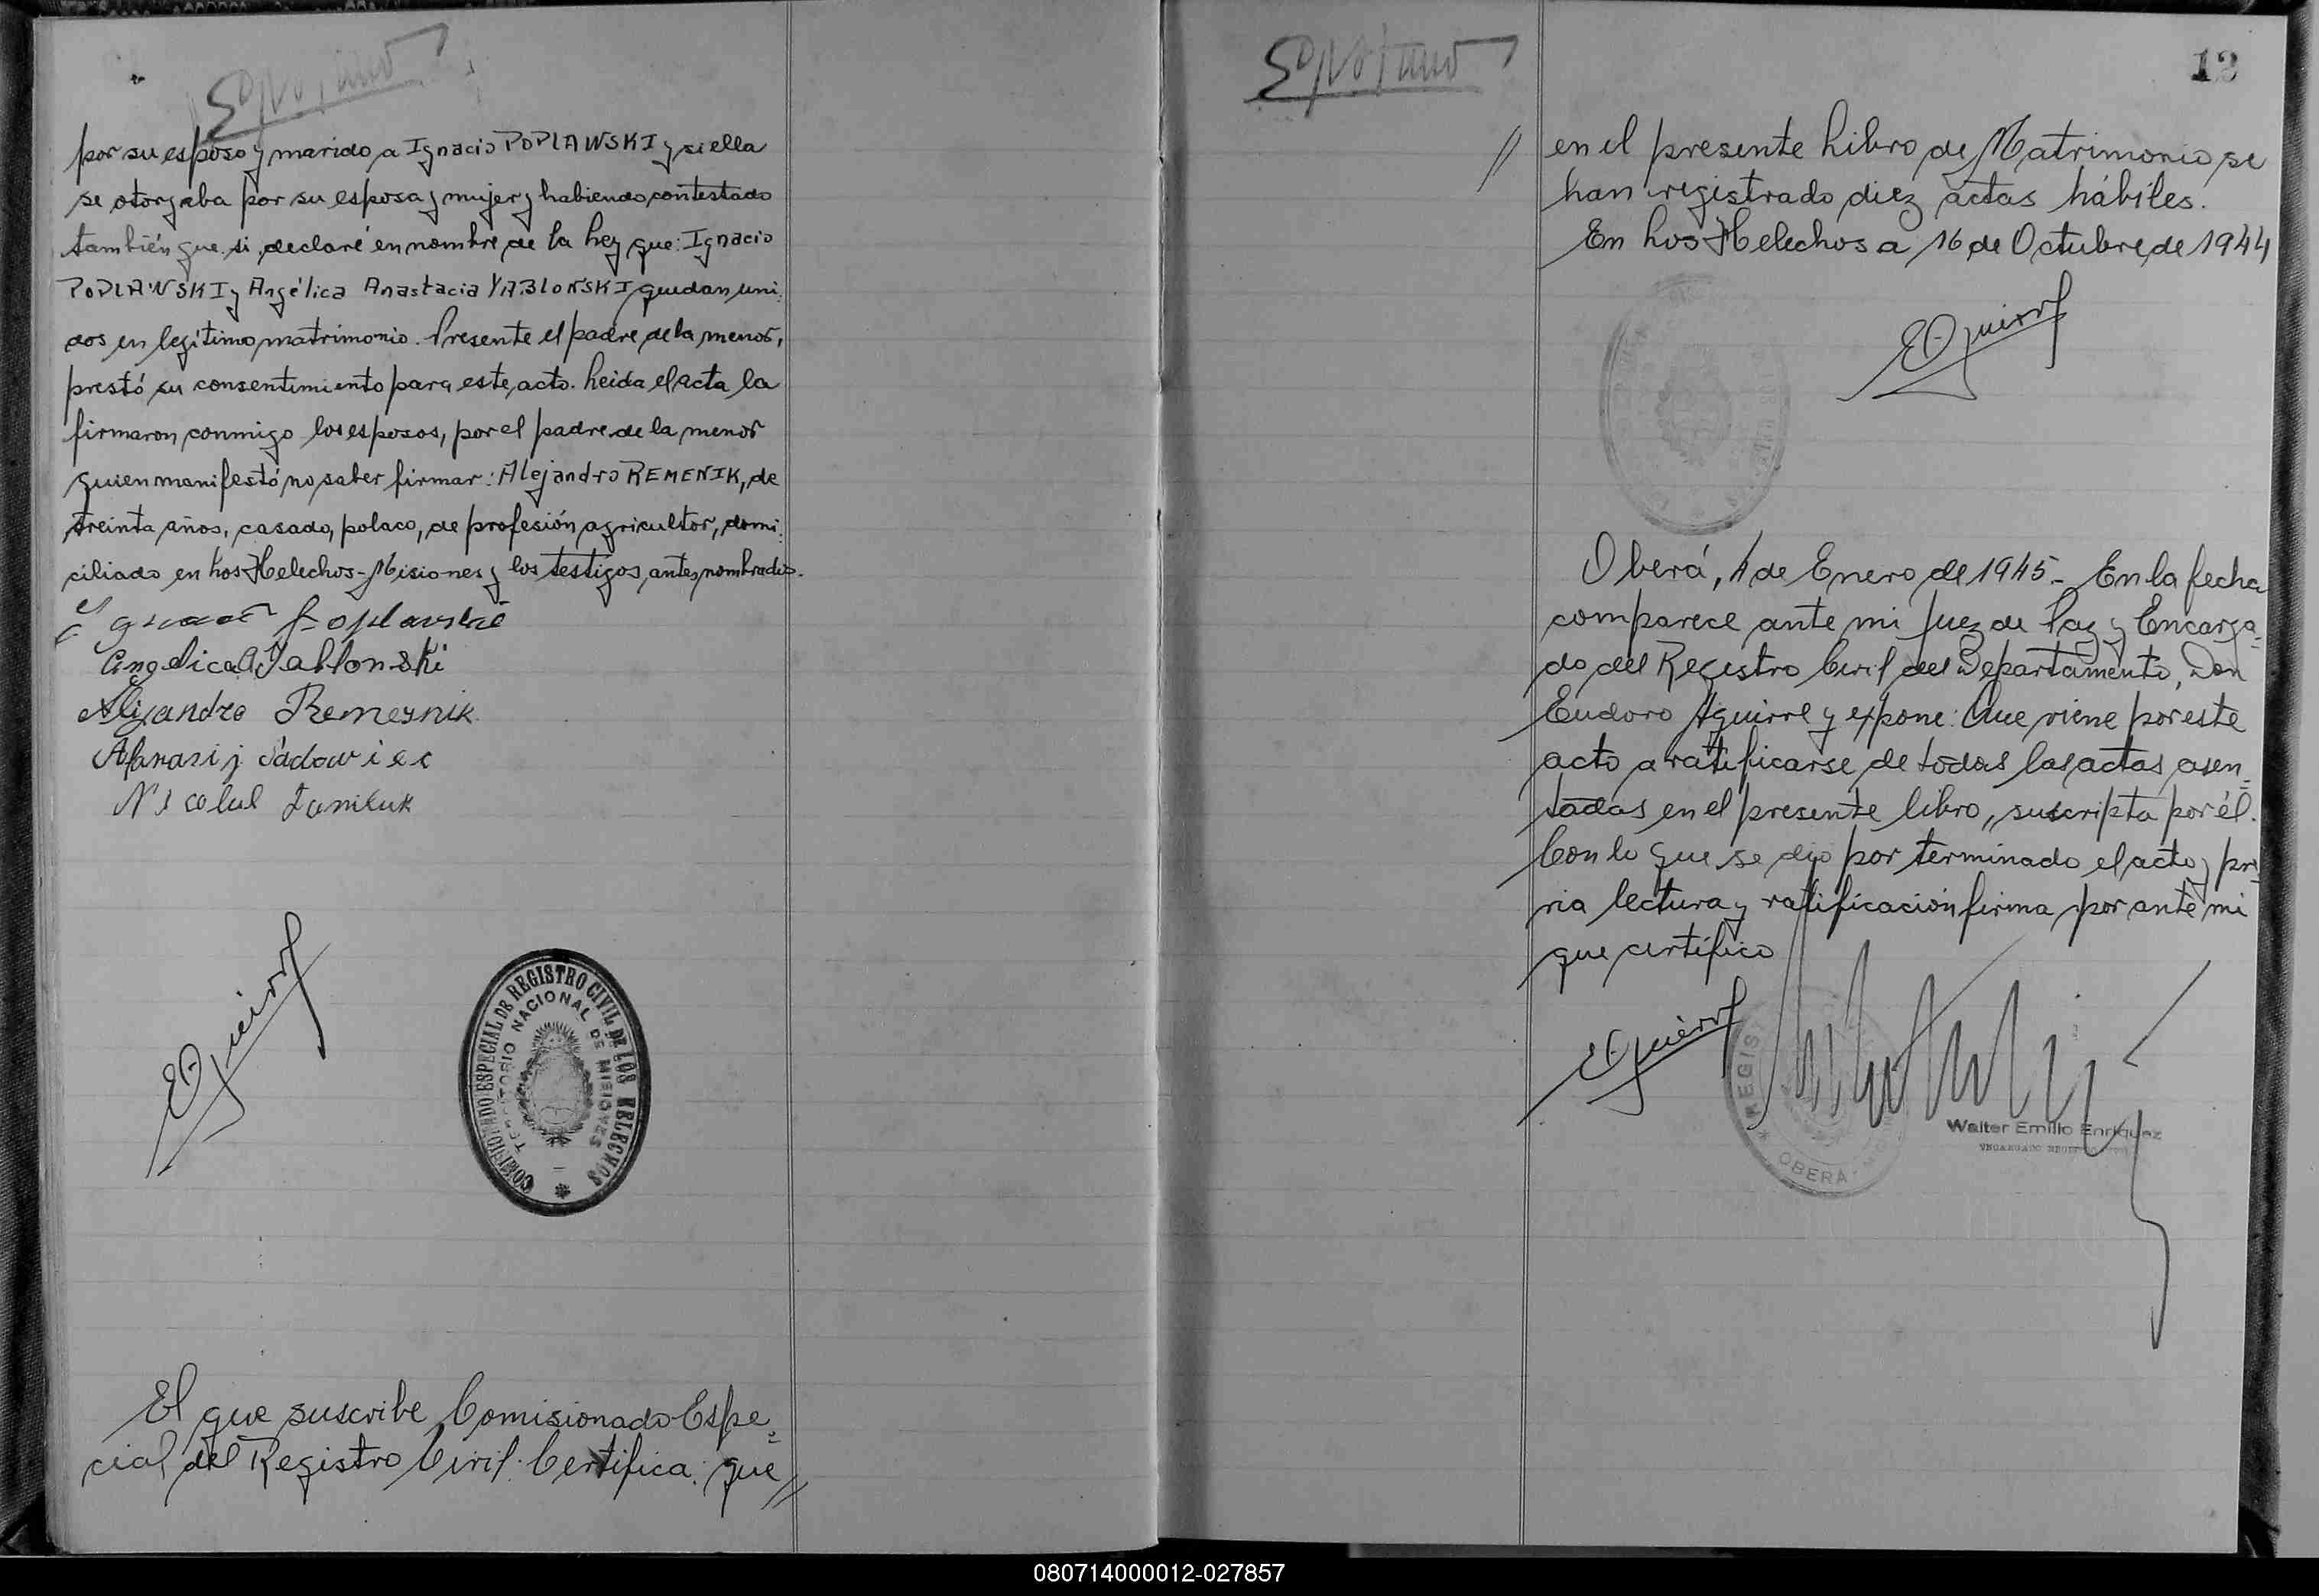 por su esposo y marido a Ignacio POPLAWSKI y si ella
se otorgaba por su esposa y mujer y habiendo contestado
también que si, declaré en nombre de la Ley que: Ignacio
POPLAWSKI y Angélica Anastacia YABLONSKI quedan uni-
dos en legítimo matrimonio. Presente el padre de la menor,
prestó su consentimiento para este acto. Leída el acta la
firmaron conmigo los esposos, por el padre de la menor
quien manifestó no saber firmar: Alejandro REMENIK, de
treinta años, casado, polaco, de profesión agricultor, domi-
ciliado en Los Helechos-Misiones y los testigos antes nombrados.
Poplavskié
Angelica A Jablonski
Alijandro Remeynik
Afanasij Sadowiec
COMISIONADO ESPECIAL DE REGISTRO CIVIL DE LOS HELECHOS
TERRITORIO NACIONAL DE MISIONES
El que suscribe Comisionado Espe-
cial del Registro Civil: Certifica: que//
12
// en el presente Libro de Matrimonio se
han registrado diez actas hábiles.
En Los Helechos a 16 de Octubre de 1944
Oberá, 4 de Enero de 1945.- En la fecha
comparece ante mi Juez de Paz y Encarga-
do del Registro Civil del Departamento, Don
Eudoro Aguirre y expone: Que viene por este
acto a ratificarse de todas las actas asen-
tadas en el presente libro, suscripta por él.
Con lo que se dio por terminado el acto y pre-
via lectura y ratificación firma por ante mi
que certifico
REGIS
OBERÁ
Walter Emilio Enriquez
080714000012-027857